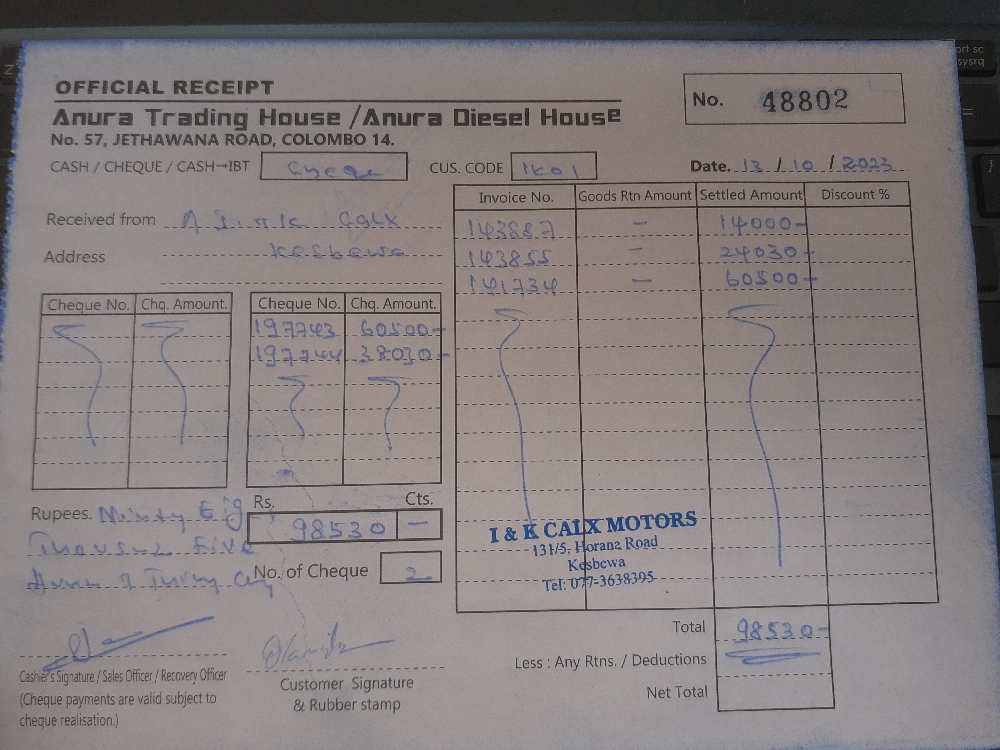 OFFICIAL RECEIPT
Anura Trading House / Anura Diesel House
No. 57, JETHAWANA ROAD, COLOMBO 14.
No. 48802
CASH / CHEQUE / CASH→IBT
CUS. CODE IK01
Date. 13 / 10 / 2023
Received from
Address Kesbewa
Invoice No. Goods Rtn Amount Settled Amount Discount %
143887 — 14000-
143855 — 24030-
141734 — 60500-
Cheque No. Chq. Amount. Cheque No. Chq. Amount.
197743 60500-
197744 38030-
Rupees. Ninty Eig
Thousand Five
Rs. Cts.
98530 —
No. of Cheque 2
I & K CALX MOTORS
131/5, Horana Road
Kesbewa
Tel: 077-3638395
Total 98530-
Less : Any Rtns. / Deductions
Net Total
Cashier's Signature / Sales Officer / Recovery Officer
(Cheque payments are valid subject to
cheque realisation.)
Customer Signature
& Rubber stamp